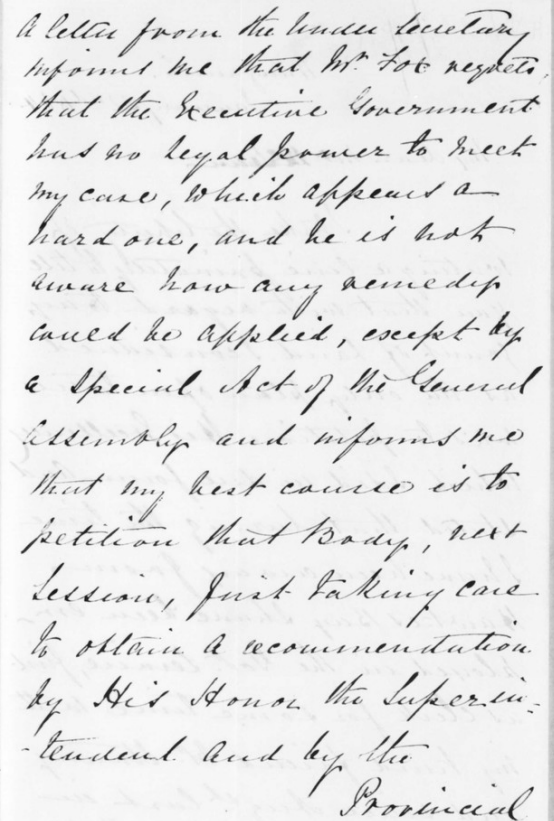 A letter from the Under Secretary
informs me that Mr. Fox regrets,
that the Executive Government
has no legal power to meet
my case, which appears a
hard one, and he is not
aware how any remedy
could be applied, except by
a special Act of the General
Assembly and informs me
that my best course is to
petition that Body, next
Session, first taking care
to obtain a recommendation
by His Honor the Superin-
-tendent and by the
Provincial